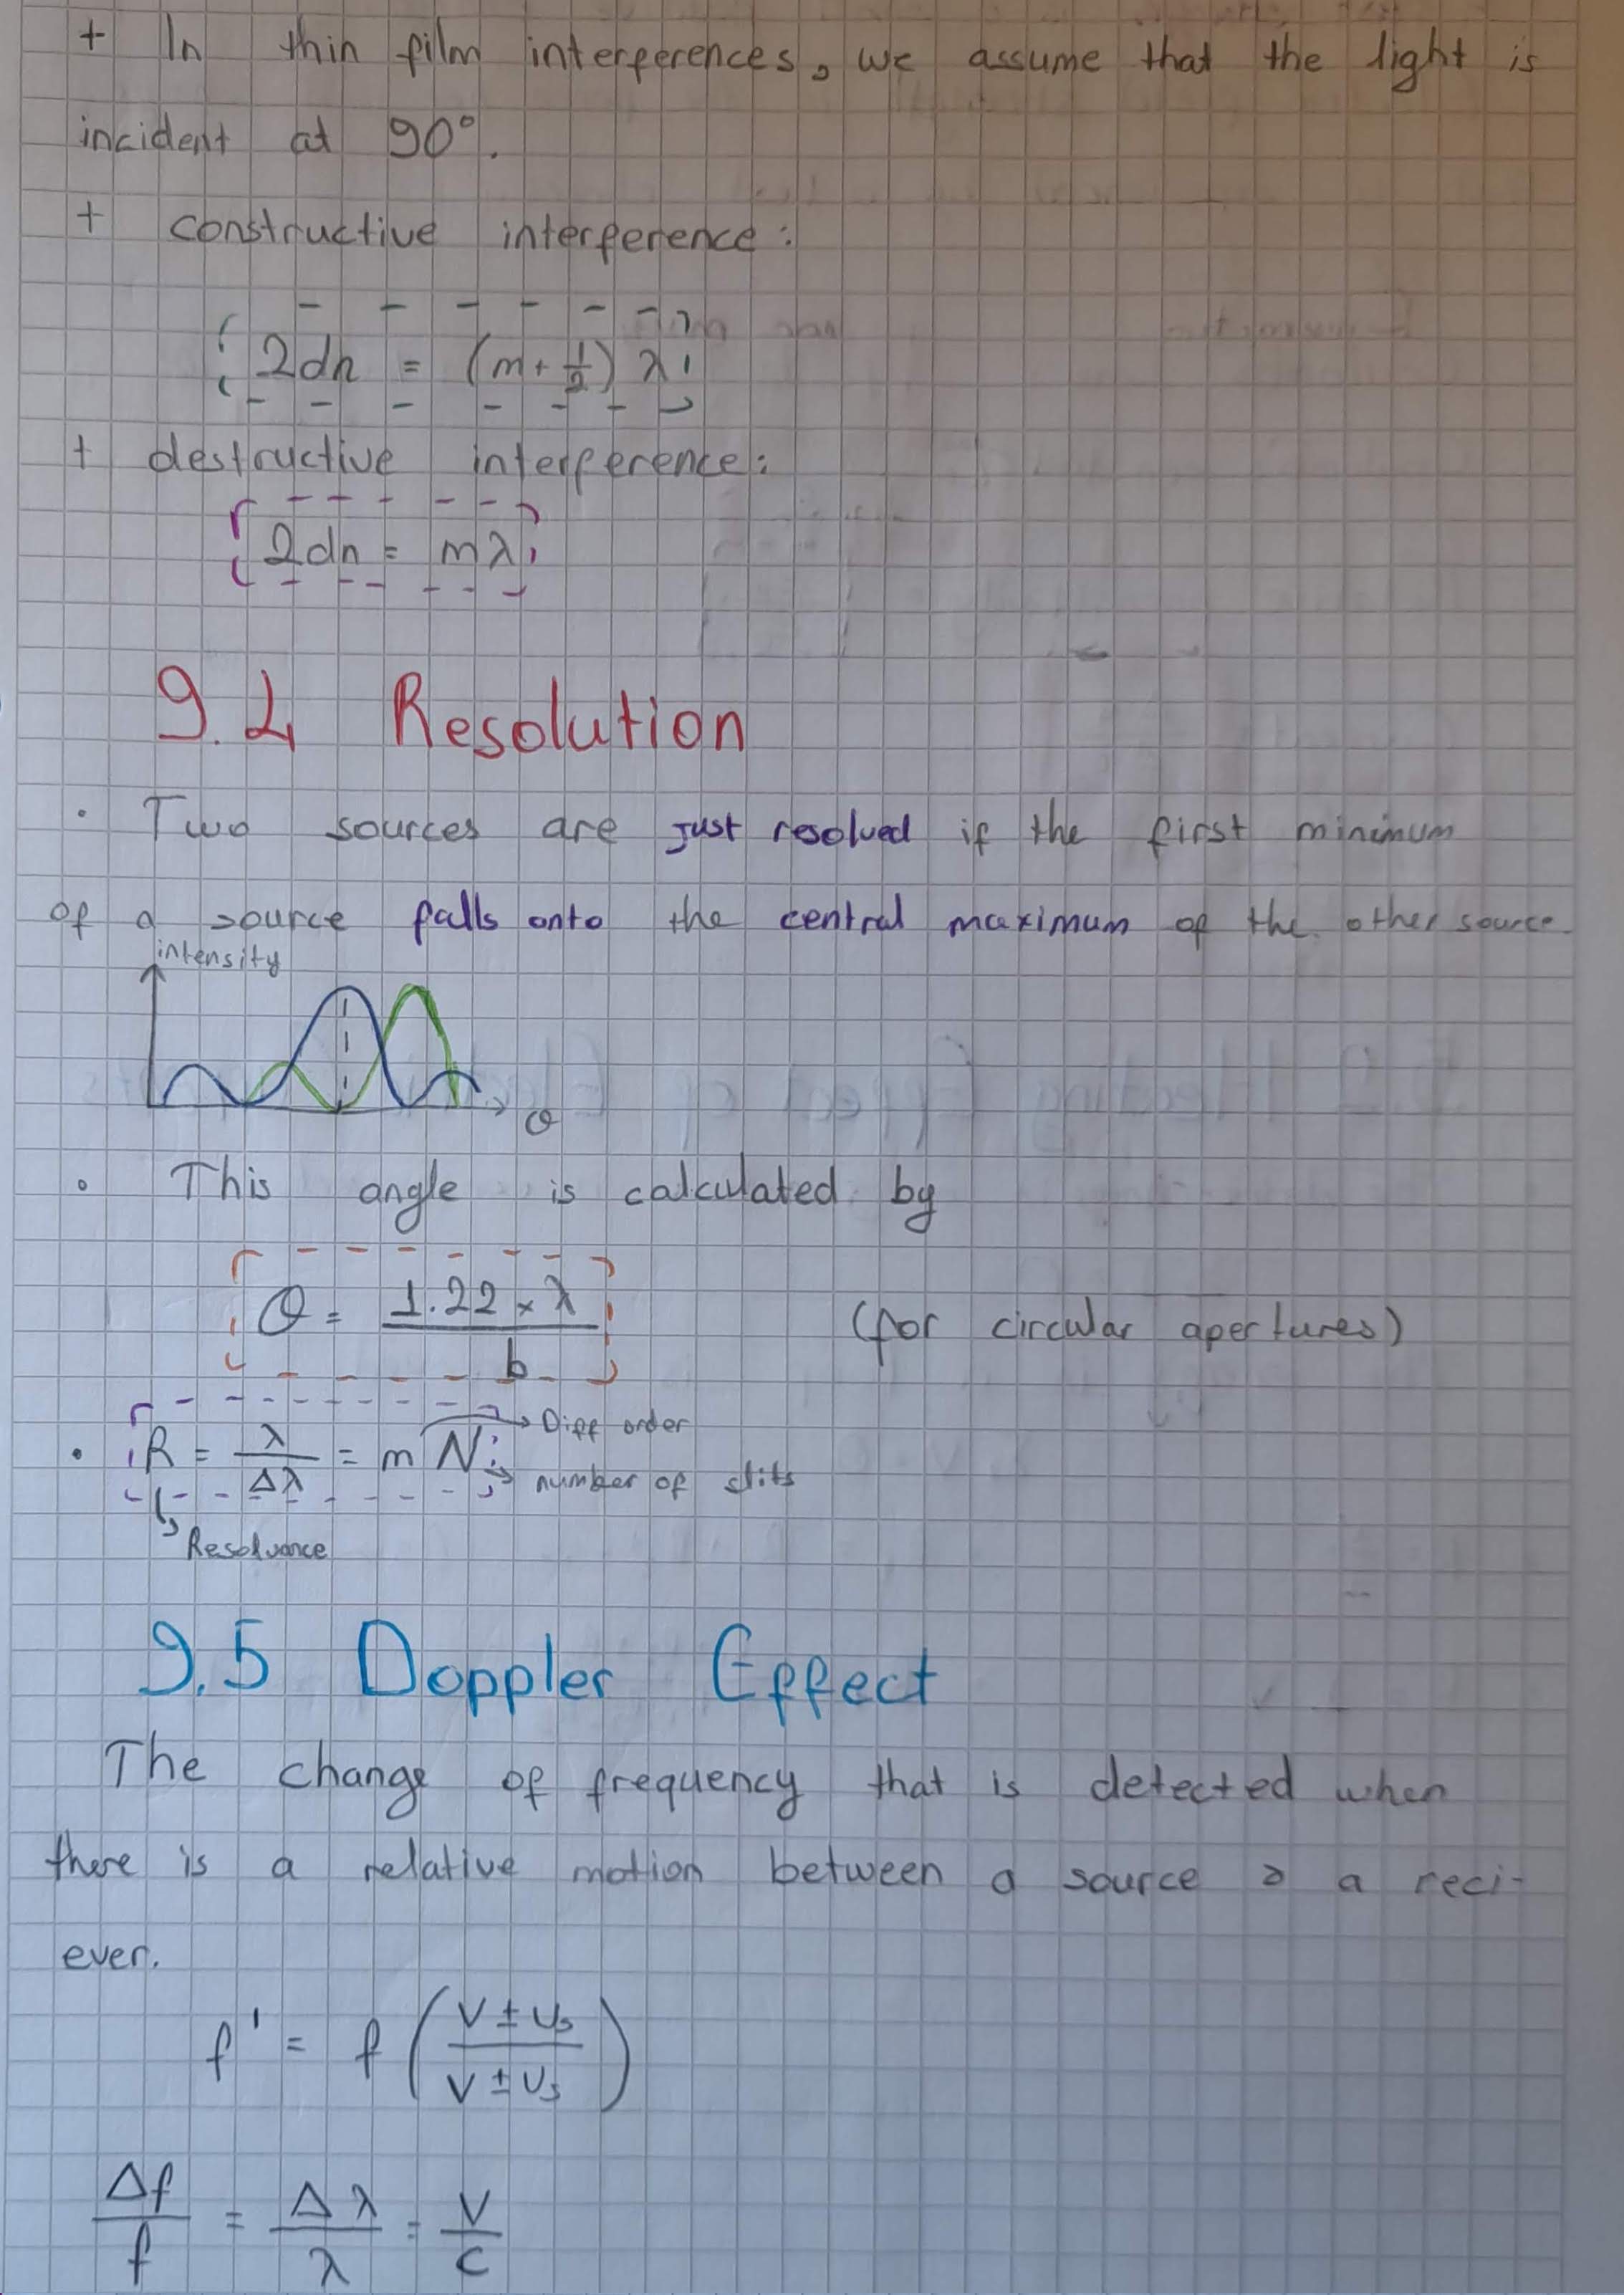 + In thin film interferences, we assume that the light is
incident at 90°.
+ constructive interference:
2dn = (m + 1/2) λ
+ destructive interference:
2dn = mλ
9.4 Resolution
· Two sources are just resolved if the first minimum
of a source falls onto the central maximum of the other source.
intensity
θ
· This angle is calculated by
θ = 1.22 × λ / b (for circular apertures)
· R = λ / Δλ = m N
Diff order
number of slits
Resolvance
9.5 Doppler Effect
The change of frequency that is detected when
there is a relative motion between a source & a reci-
ever.
f' = f (v ± us / v ± us)
Δf / f = Δλ / λ = v / c